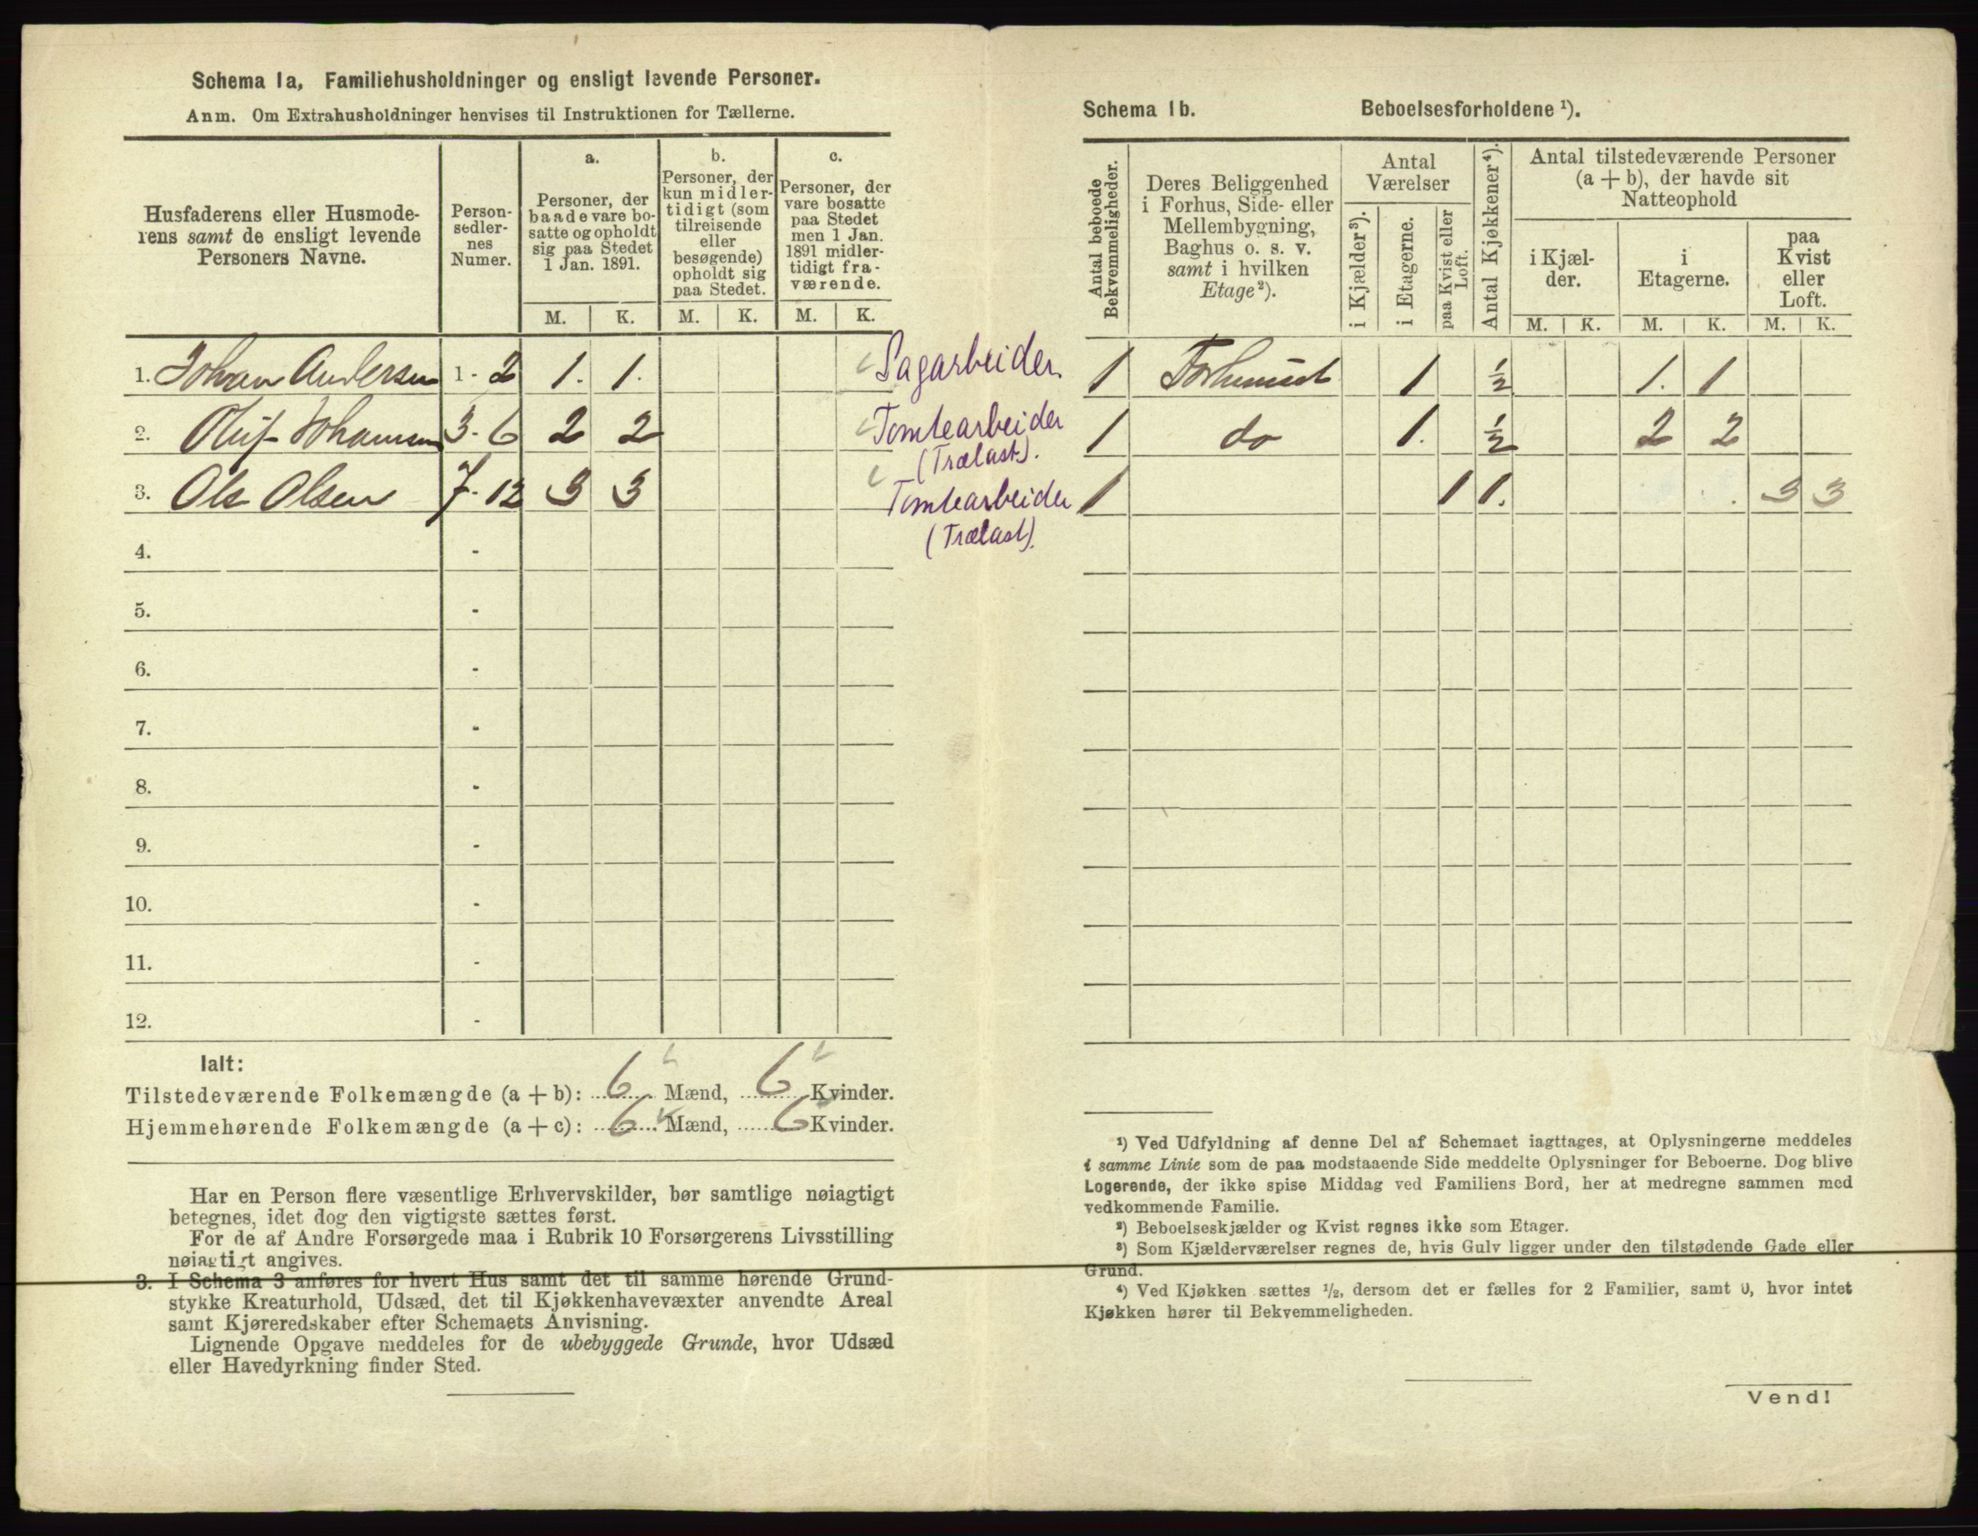 Schema 1a, Familiehusholdninger og ensligt levende Personer.
Anm. Om Extrahusholdninger henvises til Instruktionen for Tællerne.
Husfaderens eller Husmoderens samt de ensligt levende Personers Navne.
Personsedlernes Numer.
a.
Personer, der baade vare bosatte og opholdt sig paa Stedet 1 Jan. 1891.
b.
Personer, der kun midlertidigt (som tilreisende eller besøgende) opholdt sig paa Stedet.
c.
Personer, der vare bosatte paa Stedet men 1 Jan. 1891 midlertidigt fraværende.
M. K. M. K. M. K.
1. Johan Andersen 1 - 2 1. 1. Sagarbeider.
2. Oluf Johansen 3 - 6 2 2 Tomtearbeider
(Trælast).
3. Ole Olsen 7 - 12 3 3 Tomtearbeider
(Trælast).
4. -
5. -
6. -
7. -
8. -
9. -
10. -
11. -
12. -
Ialt:
Tilstedeværende Folkemængde (a + b): 6 Mænd, 6 Kvinder.
Hjemmehørende Folkemængde (a + c): 6 Mænd, 6 Kvinder.
Har en Person flere væsentlige Erhvervskilder, bør samtlige nøiagtigt
betegnes, idet dog den vigtigste sættes først.
For de af Andre Forsørgede maa i Rubrik 10 Forsørgerens Livsstilling
nøiagtigt angives.
3. I Schema 3 anføres for hvert Hus samt det til samme hørende Grund-
stykke Kreaturhold, Udsæd, det til Kjøkkenhavevæxter anvendte Areal
samt Kjøreredskaber efter Schemaets Anvisning.
Lignende Opgave meddeles for de ubebyggede Grunde, hvor Udsæd
eller Havedyrkning finder Sted.
Schema 1b. Beboelsesforholdene ¹).
Antal beboede Bekvemmeligheder.
Deres Beliggenhed i Forhus, Side- eller Mellembygning, Baghus o. s. v. samt i hvilken Etage²).
Antal Værelser
i Kjælder³).
i Etagerne.
paa Kvist eller Loft.
Antal Kjøkkener⁴).
Antal tilstedeværende Personer (a + b), der havde sit Natteophold
i Kjælder.
i Etagerne.
paa Kvist eller Loft.
M. K. M. K. M. K.
1 1 ½ 1. 1
1 do 1. ½ 2 2
1 1 1. 3 3
¹) Ved Udfyldning af denne Del af Schemaet iagttages, at Oplysningerne meddeles
i samme Linie som de paa modstaaende Side meddelte Oplysninger for Beboerne. Dog blive
Logerende, der ikke spise Middag ved Familiens Bord, her at medregne sammen med
vedkommende Familie.
²) Beboelseskjælder og Kvist regnes ikke som Etager.
³) Som Kjælderværelser regnes de, hvis Gulv ligger under den tilstødende Gade eller
Grund.
⁴) Ved Kjøkken sættes ½, dersom det er fælles for 2 Familier, samt 0, hvor intet
Kjøkken hører til Bekvemmeligheden.
Vend!